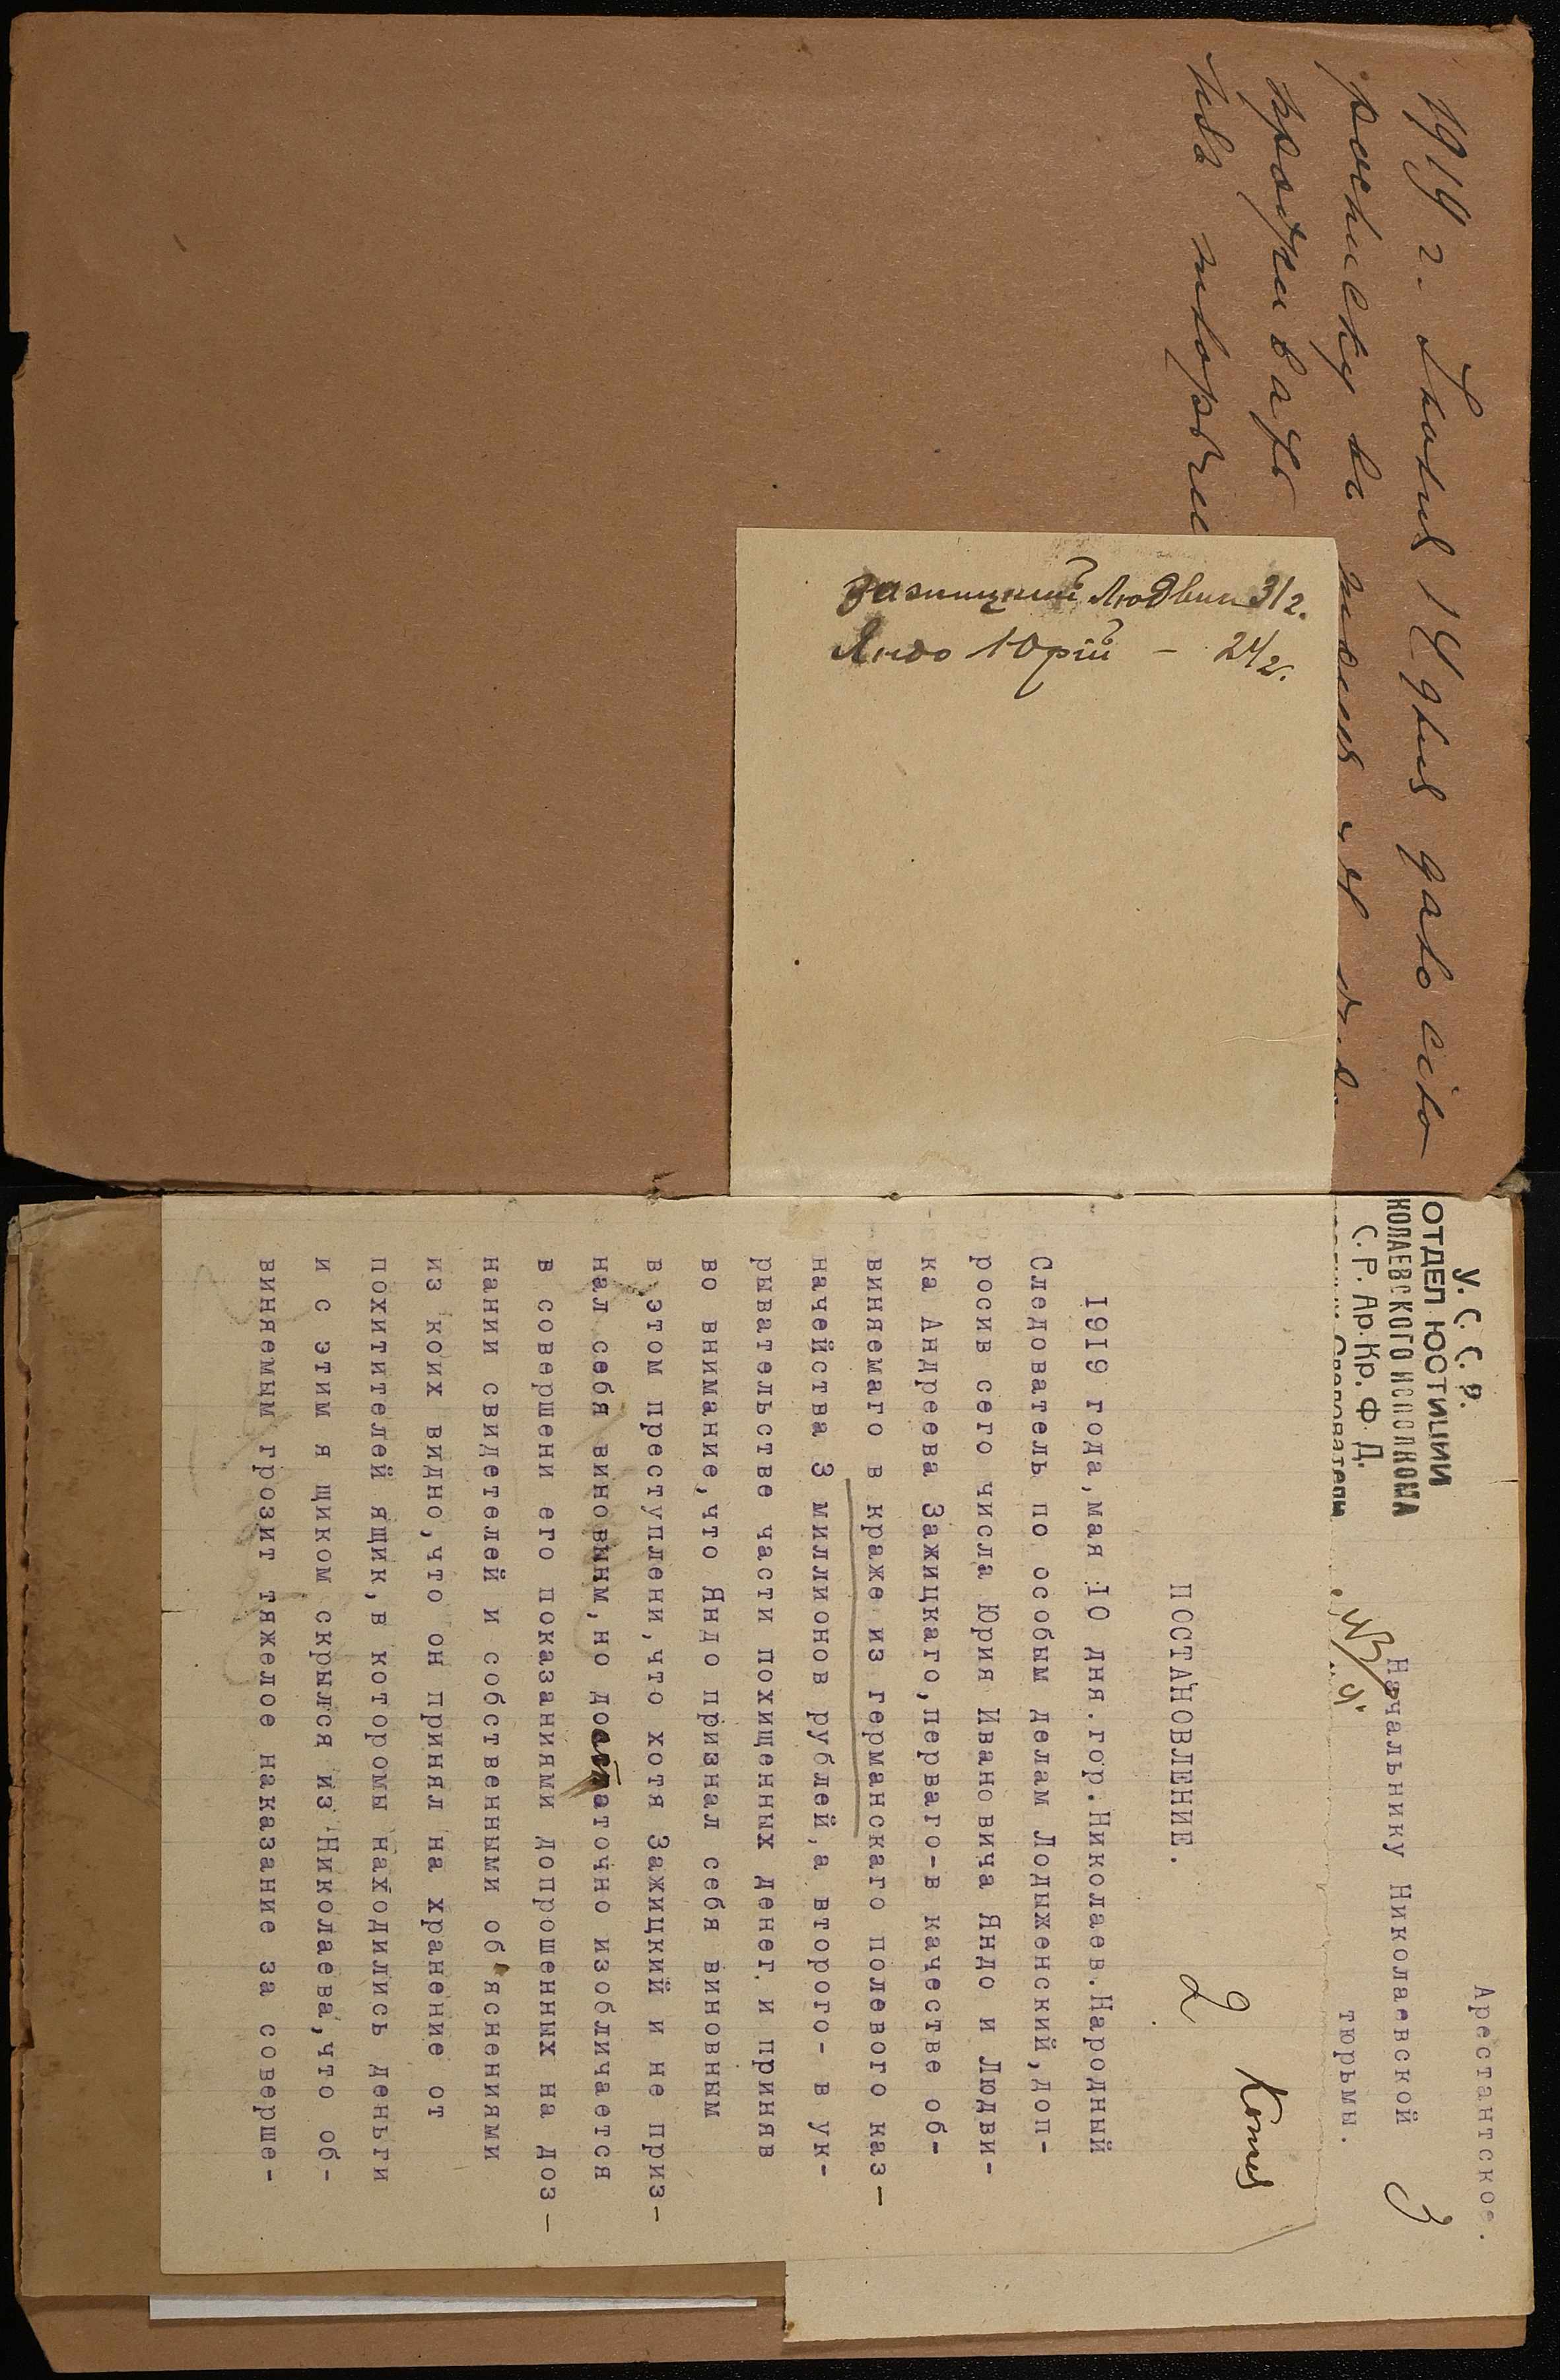 1919 г. Іюня 14 дня дано сію
росписку въ
проживать
зажицкий Людвик 31 г.
Яндо Юрій – 24 г.
У. С. С. Р.
ОТДЕЛ ЮСТИЦИИ
КОЛАЕВСКОГО ИСПОЛКОМА
С. Р. Ар. Кр. Ф Д.
Следователь
Арестантское.
Начальнику Николаевской
тюрьмы.
3
Копия
2
ПОСТАНОВЛЕНИЕ.
1919 года, мая 10 дня. гор. Николаев. Народный
Следователь по особым делам Лодыженский, доп-
росив сего числа Юрия Ивановича Яндо и Людви-
ка Андреева Зажицкаго, перваго-в качестве об-
виняемаго в краже из германскаго полевого каз-
начейства 3 миллионов рублей, а второго- в ук-
рывательстве части похищенных денег и приняв
во внимание, что Яндо признал себя виновным
в этом преступлени, что хотя Зажицкий и не приз-
нал себя виновным, но достаточно изобличается
в совершени его показаниями допрошенных на доз-
нании свидетелей и собственными об'яснениями
из коих видно, что он принял на хранение от
похитителей ящик, в котором находились деньги
и с этим я щиком скрылся из Николаева, что об-
виняемым грозит тяжелое наказание за соверше-